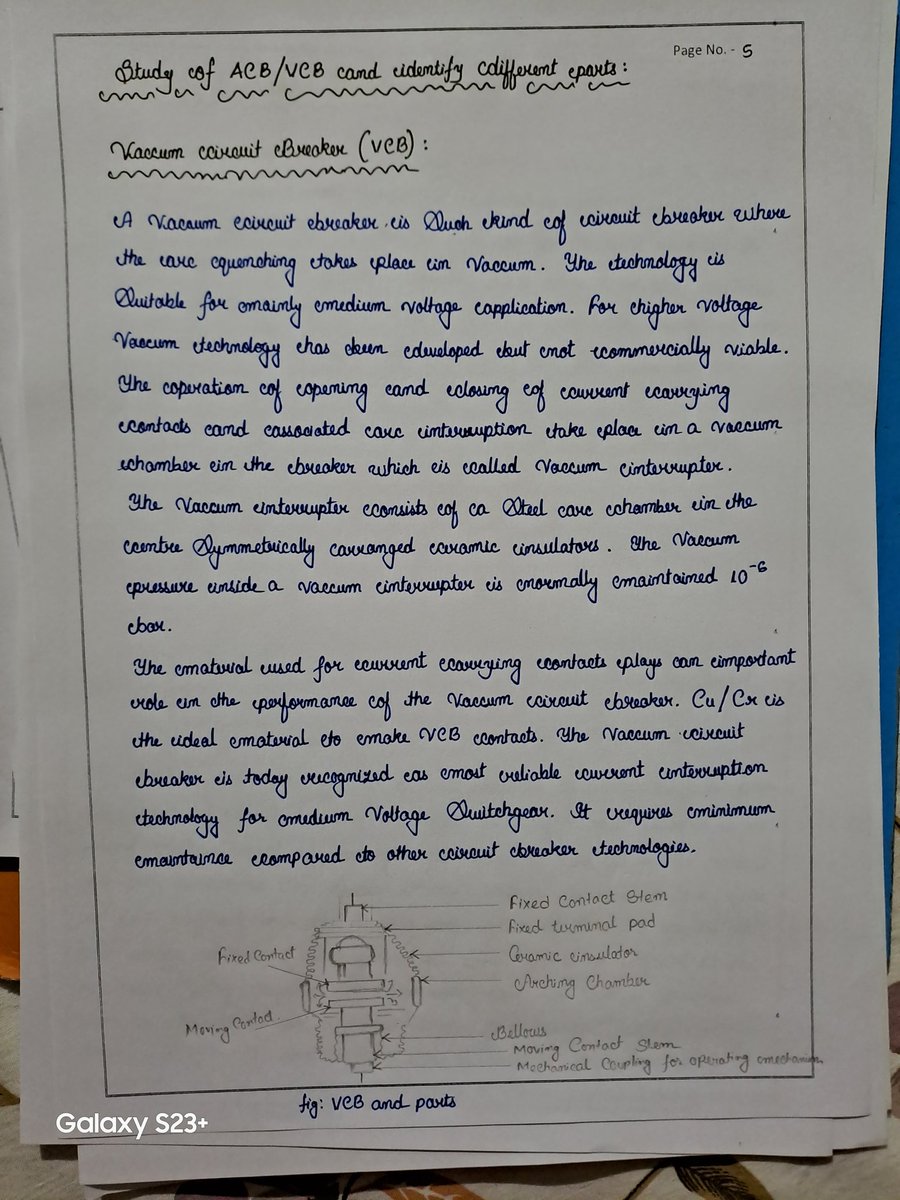 Page No. - 5
Study of ACB/VCB and identify different parts:
Vaccum circuit Breaker (VCB):
A Vacuum circuit breaker is Such kind of circuit breaker where
the arc quenching takes place in Vaccum. The technology is
Suitable for mainly medium voltage application. For higher voltage
Vaccum technology has been developed but not commercially viable.
The operation of opening and closing of current carrying
contacts and associated arc interruption take place in a vaccum
chamber in the breaker which is called Vaccum interrupter.
The Vaccum interrupter consists of a Steel arc chamber in the
centre Symmetrically arranged ceramic insulators. The Vaccum
pressure inside a vaccum interrupter is normally maintained 10⁻⁶
bar.
The material used for current carrying contacts plays an important
role in the performance of the Vaccum circuit breaker. Cu/Cr is
the ideal material to make VCB contacts. The Vaccum circuit
breaker is today recognized as most reliable current interruption
technology for medium Voltage Switchgear. It requires minimum
maintaince compared to other circuit breaker technologies.
Fixed Contact Stem
Fixed terminal pad
Fixed Contact
Ceramic insulator
Arching Chamber
Moving Contact
Bellows
Moving Contact Stem
Mechanical Coupling for operating mechanism
fig: VCB and parts
Galaxy S23+